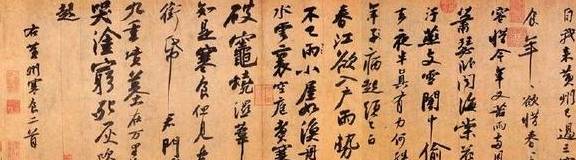 自我來黃州已過三
食年欲惜春
容惜今年又苦雨兩月
蕭瑟臥聞海棠花
汙燕支雪闇中偷
去夜半真有力何殊
年子病起頭已白
春江欲入戶雨勢
不已雨小屋如漁
水雲裏空庖煮寒
破竈燒濕葦
知是寒食但見烏
銜帋君門
九重墳墓在万里
哭塗窮死灰吹
起
右黃州寒食二首